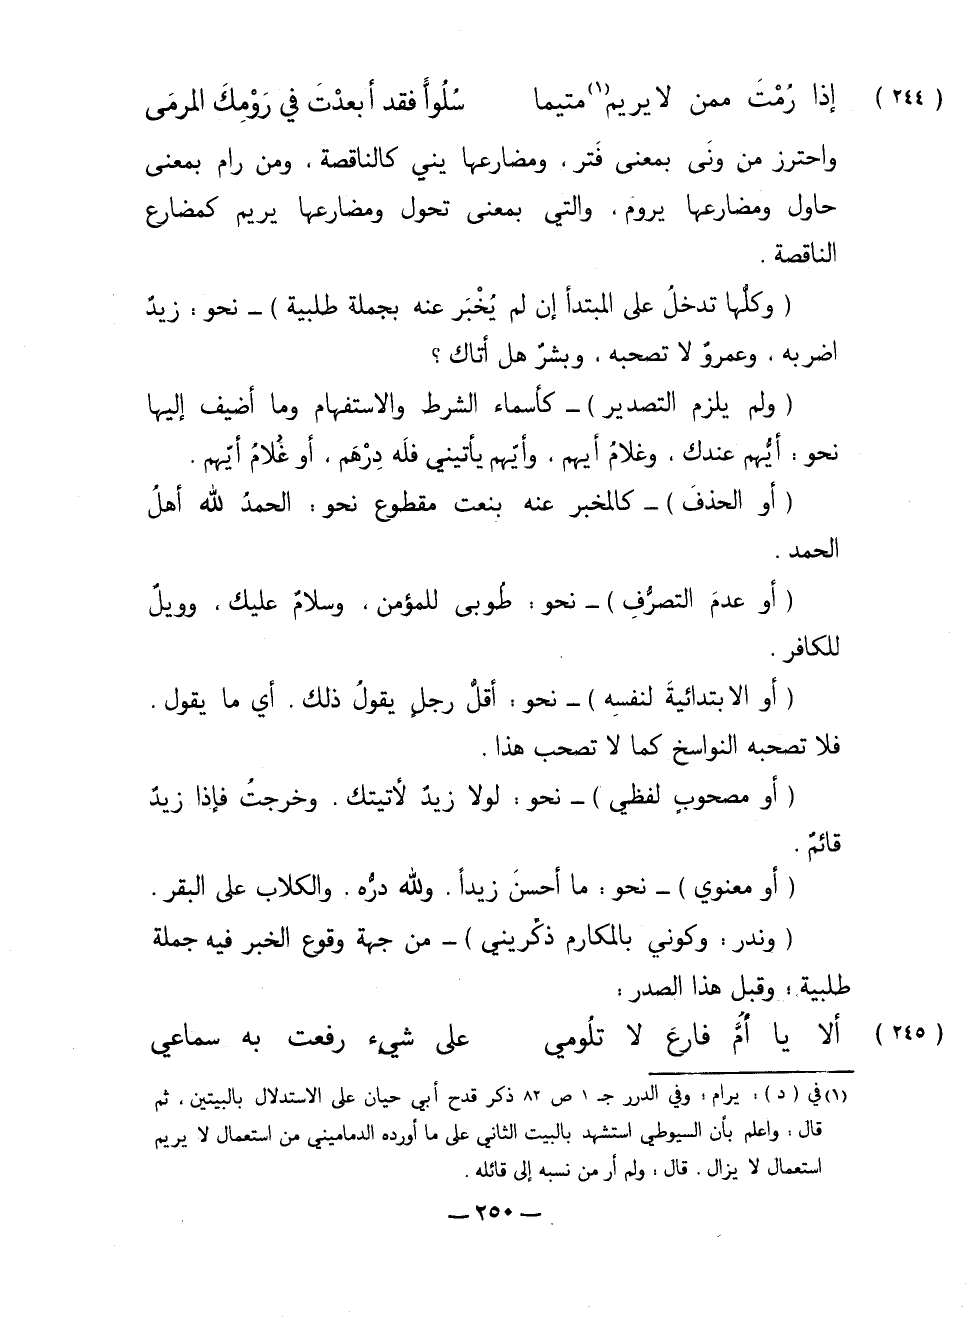 ( ٢٤٤ ) إذا رُمْتَ ممن لا يريم(١) متيما سُلُواً فقد أبعدْتَ في رَوْمِكَ المرمَى
واحترز من ونَى بمعنى فَتر ، ومضارعها يني كالناقصة ، ومن رام بمعنى
حاول ومضارعها يروم ، والتي بمعنى تحول ومضارعها يريم كمضارع
الناقصة .
( وكلُّها تدخلُ على المبتدأ إن لم يُخْبَر عنه بجملة طلبية ) ــ نحو : زيدٌ
اضربه ، وعمروٌ لا تصحبه ، وبشرٌ هل أتاك ؟
( ولم يلزم التصدير ) ــ كأسماء الشرط والاستفهام وما أضيف إليها
نحو : أيُّهم عندك ، وغلامُ أيهم ، وأيّهم يأتيني فلَه دِرْهَم ، أو غُلامُ أيّهم .
( أو الحذفَ ) ــ كالمخبر عنه بنعت مقطوع نحو : الحمدُ لله أهلُ
الحمد .
( أو عدمَ التصرُّفِ ) ــ نحو : طُوبى للمؤمن ، وسلامٌ عليك ، وويلٌ
للكافر .
( أو الابتدائيةَ لنفسِه ) ــ نحو : أقلُّ رجلٍ يقولُ ذلك . أي ما يقول .
فلا تصحبه النواسخ كما لا تصحب هذا .
( أو مصحوبٍ لفظي ) ــ نحو : لولا زيدٌ لأتيتك . وخرجتُ فإذا زيدٌ
قائمٌ .
( أو معنوي ) ــ نحو : ما أحسنَ زيدأ . ولله درُّه . والكلاب على البقر .
( وندر : وكوني بالمكارم ذكّريني ) ــ من جهة وقوع الخبر فيه جملة
طلبية ؛ وقبل هذا الصدر :
( ٢٤٥ ) ألا يا أُمَّ فارعَ لا تلُومي على شيء رفعت به سماعي
(١) في ( د ) : يرام ؛ وفي الدرر جـ ١ ص ٨٢ ذكر قدح أبي حيان على الاستدلال بالبيتين ، ثم
قال : واعلم بأن السيوطي استشهد بالبيت الثاني على ما أورده الدماميني من استعمال لا يريم
استعمال لا يزال . قال : ولم أر من نسبه إلى قائله .
ــ ٢٥٠ ــ